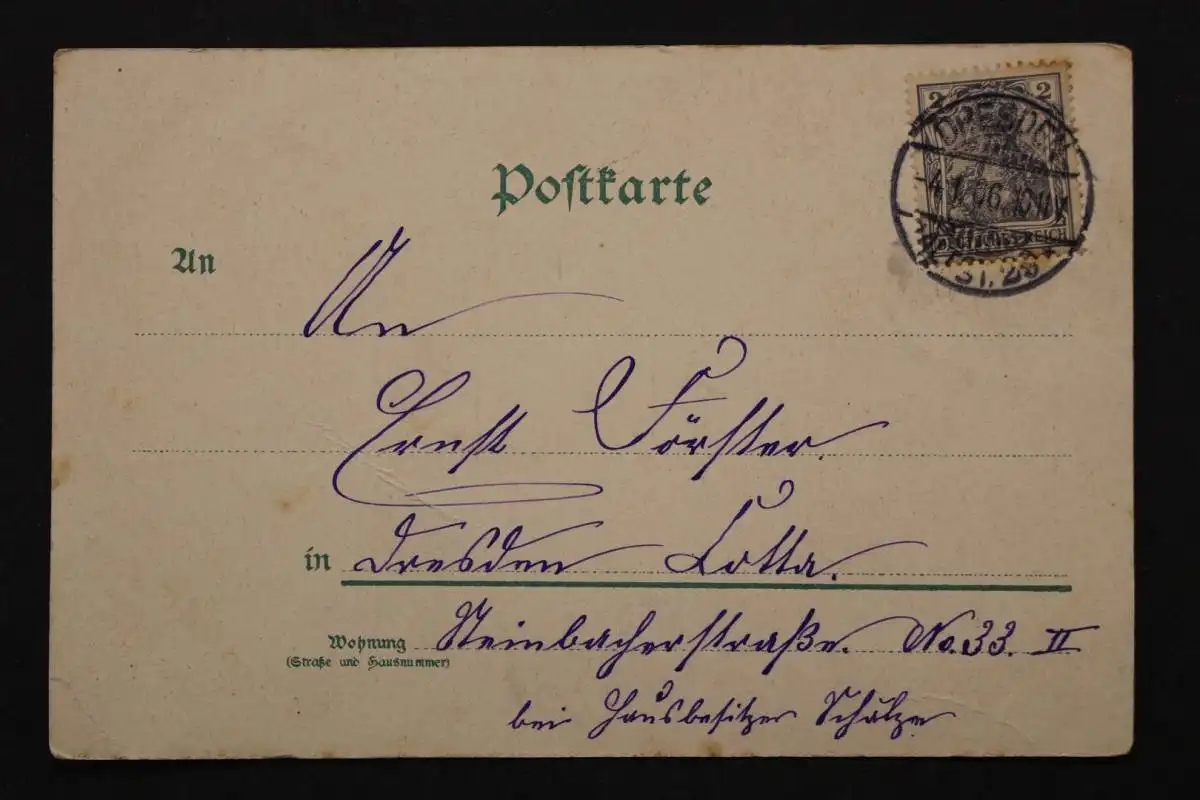 2 2
DRESDEN
4.1.06.10-11V.
DEUTSCHES REICH
ALTST. 29
Postkarte
An
An
Ernst Förster.
in Dresden Cotta.
Wohnung Steinbacherstraße. No. 33. II
(Straße und Hausnummer)
bei Hausbesitzer Schulze